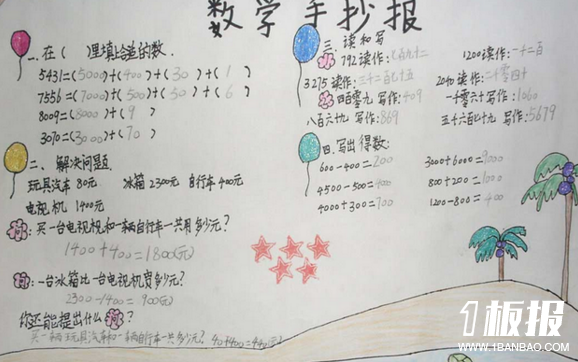 数学手抄报
一.在( )里填上合适的数.
5431=(5000)+(400)+(30)+(1)
7556=(7000)+(500)+(50)+(6)
8009=(8000)+(9)
3070=(3000)+(70)
二、解决问题.
玩具汽车80元 冰箱2300元 自行车400元
电视机 1400元
问:买一台电视机和一辆自行车一共用多少元?
1400+400=1800(元)
问:一台冰箱比一台电视机贵多少元?
2300-1400=900(元)
你还能提出什么问?
买一辆玩具汽车和一辆自行车一共多少元?
三.读和写
792读作:七百九十二 1200读作:一千二百
3275读作:三千二百七十五 2040读作:二千零四十
四百零九 写作:409 一千零六十 写作:1060
八百六十九 写作:869 五千六百七十九 写作:5679
四.写出得数:
600-400=200 3000+6000=9000
4500-500=4000 800+200=1000
4000+300=700 1200-800=400
1板报
WWW.1BANBAO.COM